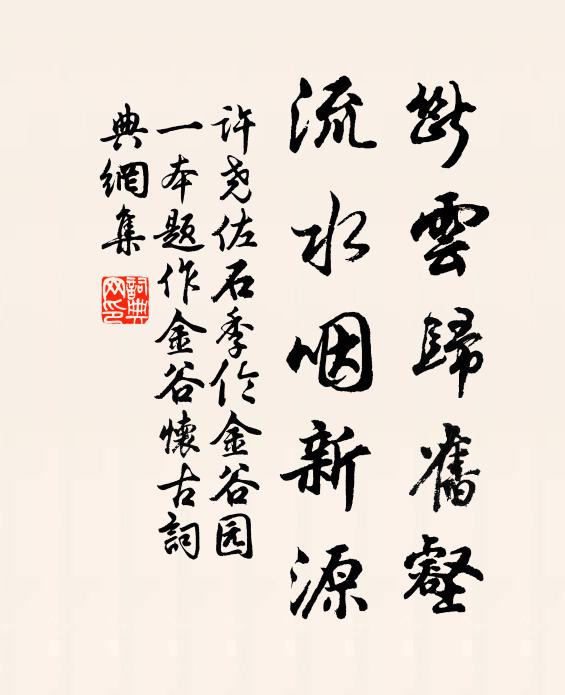 斷雲歸舊壑
流水咽新源
许尧佐石季伦金谷园
一本题作金谷懷古詞
典網集
詞典网印